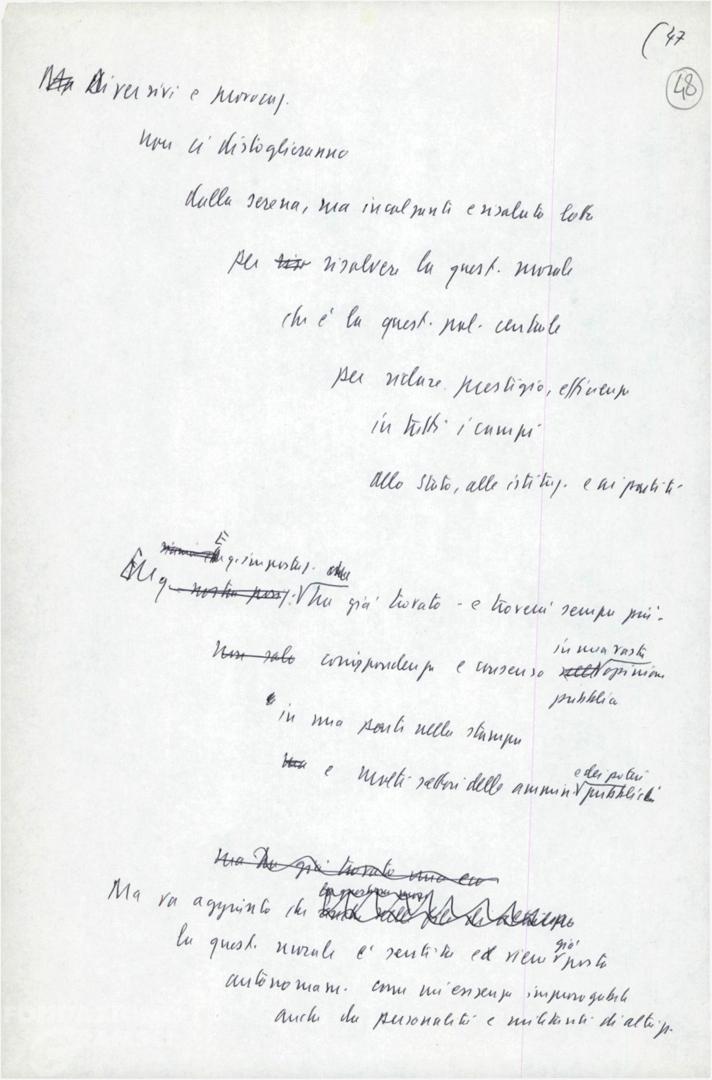 (47
48
Ma Diversivi e provocaz.
non ci distoglieranno
dalla serena, ma incalzante e risoluta lotta
per risolvere la quest. morale
che è la quest. pol. centrale
per ridare prestigio, efficienza
in tutti i campi
allo Stato, alle istituz. e ai partiti.
È
q. impostaz. che
nostra posiz. ha già trovato - e troverà sempre più -
in una vasta
Non solo corrispondenza e consenso opinione
pubblica
in una parte nella stampa
e dei poteri
ma e molti settori delle ammin. pubblici
ma ha già trovato una eco
Ma va aggiunto che
già
la quest. morale è sentita ed viene posta
autonomam. come un'esigenza improrogabile
anche da personalità e militanti di altri p.